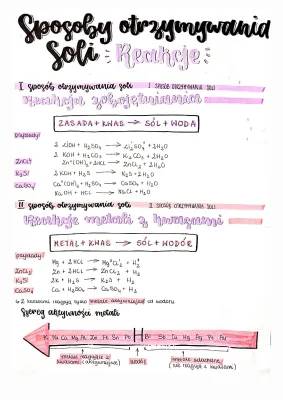 Sposoby otrzymywania
Soli - Reakcje
I sposób otrzymywania soli I SPOSÓB OTRZYMYWANIA SOLI
Reakcja zobojętniania
ZASADA + KWAS → SÓL + WODA
Przykłady:
2 LiOH + H₂SO₄ → Li₂SO₄ + 2H₂O
2 KOH + H₂CO₃ → K₂CO₃ + 2H₂O
ZnCl₂
K₂S 2 KOH + H₂S → K₂S + 2 H₂O
CaSO₄ Ca(OH)₂ + H₂SO₄ → CaSO₄ +
NaOH + HCl → NaCl + H₂O
II sposób otrzymywania soli II SPOSÓB OTRZYMYWANIA SOLI
Reakcje metali z kwasami
METAL + KWAS → SÓL + WODÓR
przykłady:
Mg + 2HCl → + H₂
ZnCl₂ Zn + 2HCl → ZnCl₂ + H₂
K₂S 2K + H₂S → K₂S + H₂
CaSO₄ Ca + H₂SO₄ → CaSO₄ + H₂
z kwasami reagują tylko metale aktywniejsze od wodoru
Szereg aktywności metali
K Na Ca Mg Al Zn Fe Sn Pb H Bi Cu Hg Ag Pt Au
metale reagujące z wodór metale szlachetne
kwasami (aktywniejsze) (nie reagują z kwasami)